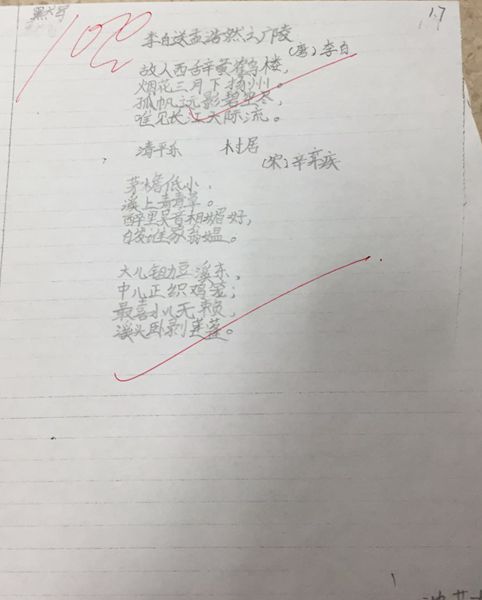 黑大号
1.7
100
李白送孟浩然之广陵
(唐)李白
故人西辞黄鹤楼,
烟花三月下扬州。
孤帆远影碧空尽,
唯见长江天际流。
清平乐 村居
(宋)辛弃疾
茅檐低小,
溪上青青草。
醉里吴音相媚好,
白发谁家翁媪。
大儿锄豆溪东,
中儿正织鸡笼;
最喜小儿无赖,
溪头卧剥莲蓬。